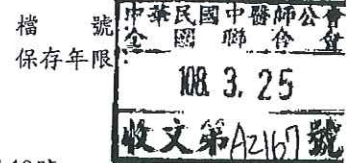 檔　　號
保存年限:
中華民國中醫師公會
全國聯合會
108. 3. 25
收文第A2167號